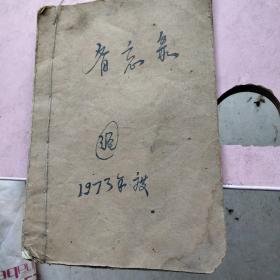 备忘录
1973年度